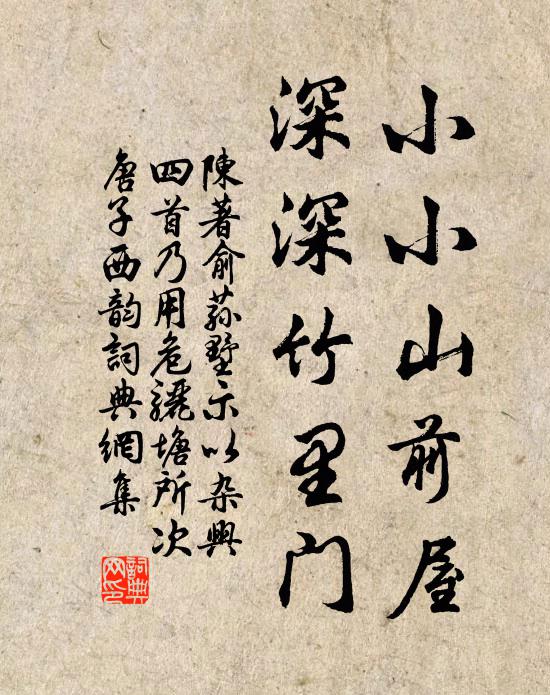 小小山前屋
深深竹里门
陳著俞蒜墅示以杂興
四首乃用危驪塘所次
唐子西韵詞典網集
詞典網印